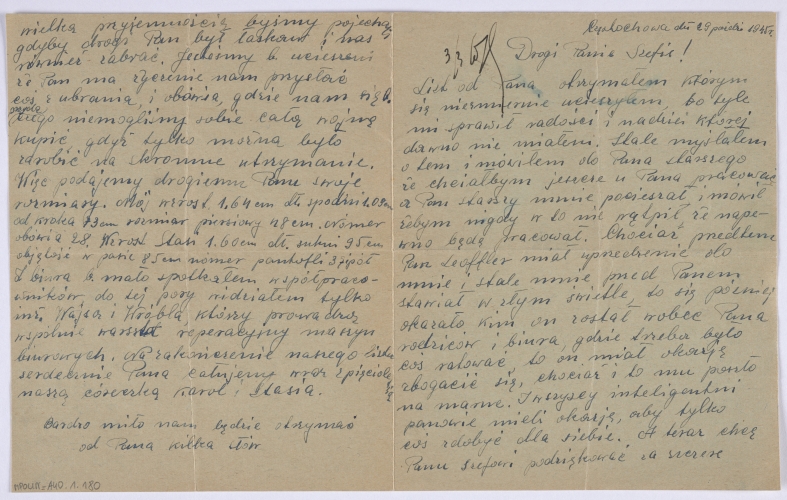 Częstochowa dn 29 paźdz 1945 r.
Drogi Panie Szefie!
List od Pana otrzymałem którym
się niezmiernie ucieszyłem, bo tyle
mi sprawił radości i nadziei której
dawno nie miałem. Stale myślałem
o tem i mówiłem do Pana starszego
że chciałbym jeszcze u Pana pracować
a Pan starszy mnie pocieszał i mówił
żebym nigdy w to nie wątpił że nape-
wno będę pracował. Chociaż przedtem
Pan Leoffler miał uprzedzenie do
mnie i stale mnie przed Panem
stawiał w złym świetle, to się później
okazało kim on został wobec Pana
rodziców i biura, gdzie trzeba było
coś ratować to on miał okazję
zbogacić się, chociaż i to mu poszło
na marne. I wszyscy inteligentni
panowie mieli okazję, aby tylko
coś zdobyć dla siebie. A teraz chcę
Panu szefowi podziękować za szczere
wielką przyjemnością byśmy pojechali
gdyby drogi Pan był łaskaw i nas
również zabrać. Jesteśmy b. ucieszeni
że Pan ma życzenie nam przysłać
coś z ubrania, i obuwia, gdzie nam się b.
tego niemogliśmy sobie całą wojnę
kupić gdyż tylko można było
zarobić na skromne utrzymanie.
Więc podajemy drogiemu Panu swoje
rozmiary. Mój wzrost 1.64 cm dł. spodni 1.03 cm
od kroka 73 cm rozmiar piersiowy 48 cm. Numer
obuwia 28. Wzrost Stasi 1.60 cm dł. sukni 95 cm
objętość w pasie 85 cm numer pantofli 37 i pół
Z biura b. mało spotkałem współpraco-
wników, do tej pory widziałem tylko
inż. Wajsa i Wróbla, którzy prowadzą
wspólnie warsztat reperacyjny maszyn
biurowych. Na zakończenie naszego listu
serdecznie Pana całujemy wraz z pięcioletnią
naszą córeczką Karol i Stasia.
Bardzo miło nam będzie otrzymać
od Pana kilka słów
MPOLIN-A40.1.180